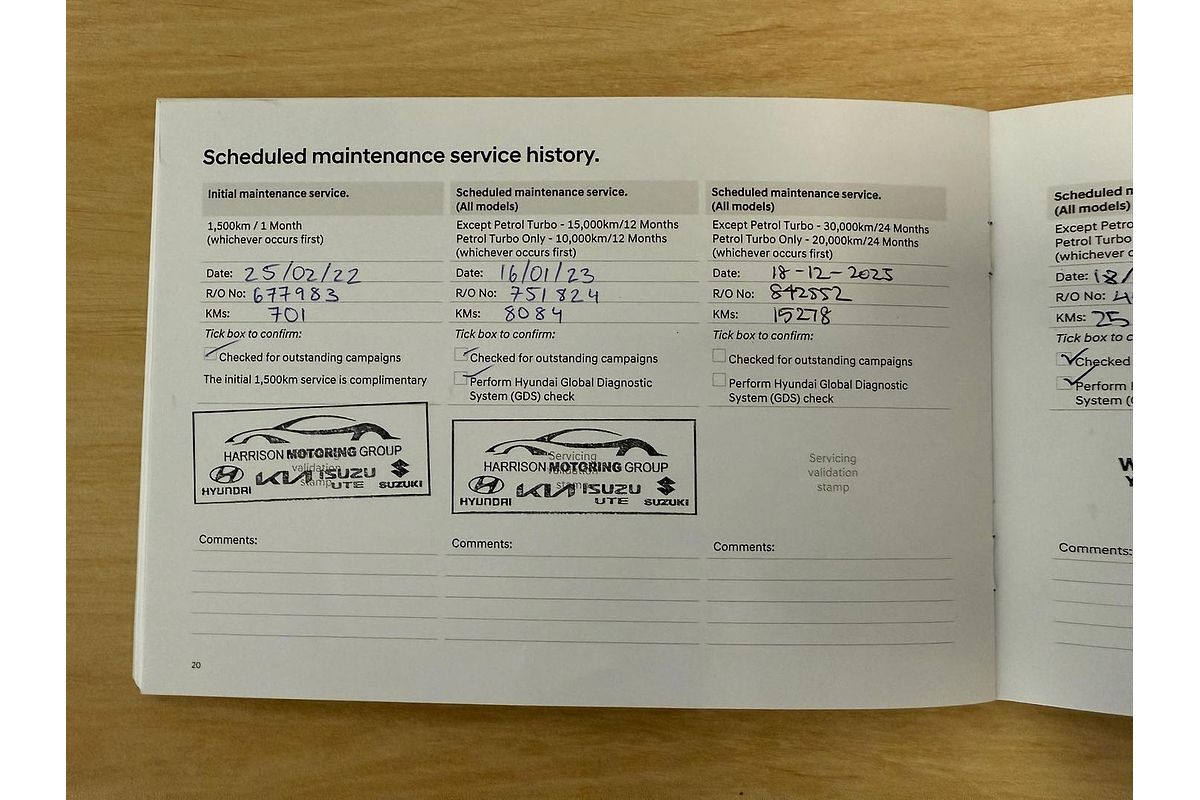 Scheduled maintenance service history.
Initial maintenance service.
1,500km / 1 Month
(whichever occurs first)
Date: 25/02/22
R/O No: 677983
KMs: 701
Tick box to confirm:
Checked for outstanding campaigns
The initial 1,500km service is complimentary
HARRISON MOTORING GROUP
validation
stamp
HYUNDAI KIA ISUZU UTE SUZUKI
Comments:
20
Scheduled maintenance service.
(All models)
Except Petrol Turbo - 15,000km/12 Months
Petrol Turbo Only - 10,000km/12 Months
(whichever occurs first)
Date: 16/01/23
R/O No: 751824
KMs: 8084
Tick box to confirm:
Checked for outstanding campaigns
Perform Hyundai Global Diagnostic
System (GDS) check
Servicing
HARRISON MOTORING GROUP
validation
stamp
HYUNDAI KIA ISUZU UTE SUZUKI
Comments:
Scheduled maintenance service.
(All models)
Except Petrol Turbo - 30,000km/24 Months
Petrol Turbo Only - 20,000km/24 Months
(whichever occurs first)
Date: 18-12-2025
R/O No: 842552
KMs: 15278
Tick box to confirm:
Checked for outstanding campaigns
Perform Hyundai Global Diagnostic
System (GDS) check
Servicing
validation
stamp
Comments:
Scheduled m
(All models)
Except Petro
Petrol Turbo
(whichever o
Date: 18/
R/O No: 4
KMs: 25
Tick box to c
Checked
Perform H
System (G
W
Y
Comments: